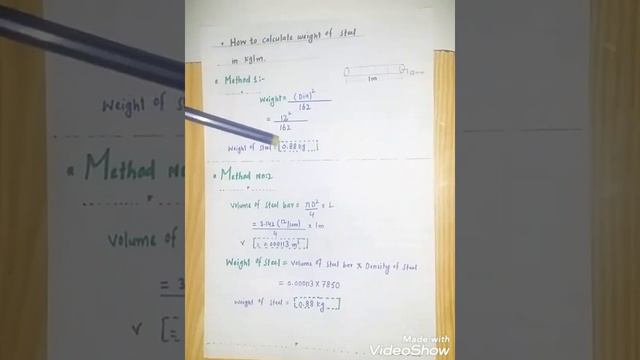 • How to calculate weight of steel
in Kg/m.
• Method 1:-
1m
Weight = (Dia)²
162
= 12²
162
Weight of steel = 0.88 kg
• Method No:2
Volume of steel bar = πD² × L
4
= 3.142 (12/1000)² × 1m
4
V = 0.000113 m³
Weight of steel = Volume of steel bar × Density of steel
= 0.000113 × 7850
Weight of steel = 0.88 kg
Made with
VideoShow